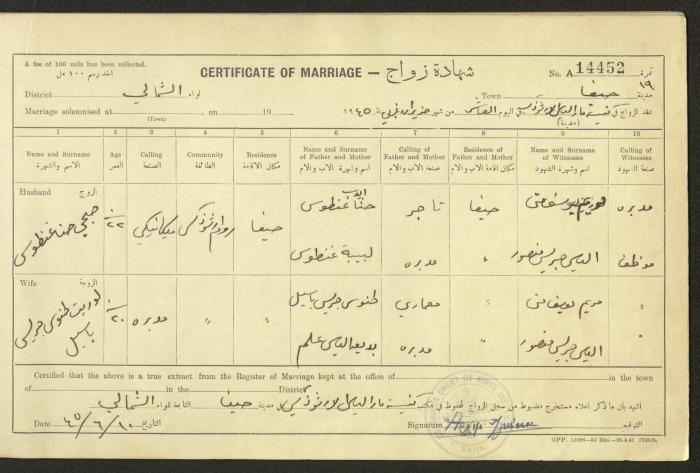 A fee of 100 mils has been collected.
اخذ رسم ١٠٠ مل
CERTIFICATE OF MARRIAGE — شهادة زواج
No. A 14452 نمرة
١٩
District الشمالي لواء
Town حيفا مدينة
Marriage solemnised at , on 19 ١٩٤٥
(Town)
عقد الزواج في كنيسة مار الياس اليوم العاشر من شهر حزيران
(مدينة)
1 2 3 4 5 6 7 8 9 10
Name and Surname
الاسم والشهرة
Age
العمر
Calling
الصنعة
Community
الطائفة
Residence
مكان الاقامة
Name and Surname of Father and Mother
اسم وشهرة الاب والام
Calling of Father and Mother
صنعة الاب والام
Residence of Father and Mother
مكان اقامة الاب والام
Name and Surname of Witnesses
اسم وشهرة الشهود
Calling of Witnesses
صنعة الشهود
Husband الزوج
صبحي حنا غنطوس
٢٢
ميكانيكي
روم ارثوذكس
حيفا
حنا غنطوس
تاجر
حيفا
مدبره
لبيبة غنطوس
مدبره
"
الياس جريس منصور
موظف
Wife الزوجة
لوريت طنوس جريس باسيل
٢٠
مدبره
"
"
طنوس جريس باسيل
معماري
"
مريم
"
بديعه الياس علم
مدبره
"
الياس جريس منصور
"
Certified that the above is a true extract from the Register of Marriage kept at the office of in the town
of in the District
اشهد بان ما ذكر اعلاه مستخرج مضبوط من سجل الزواج المحفوظ في مكتب كنيسة مار الياس لروم ارثوذكس في مدينة حيفا التابعة للواء الشمالي
Date ٤٥/٦/١٠ التاريخ
Signature التوقيع
G.P.P. 12398—50 Bks.—28.4.41 1736/S.